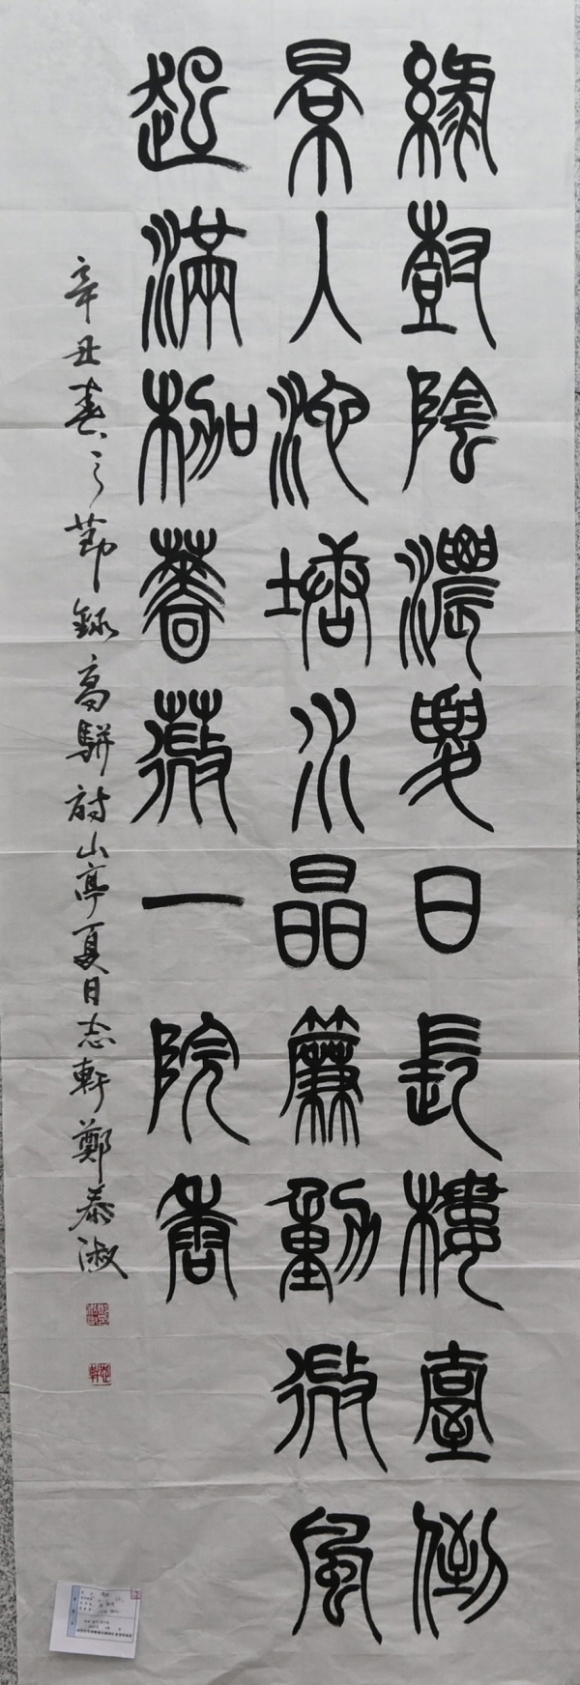 綠樹陰濃夏日長樓臺倒
景入池塘水晶簾動微風
起滿架薔薇一院香
辛丑春之勤錄高駢詩山亭夏日志軒鄭泰淑